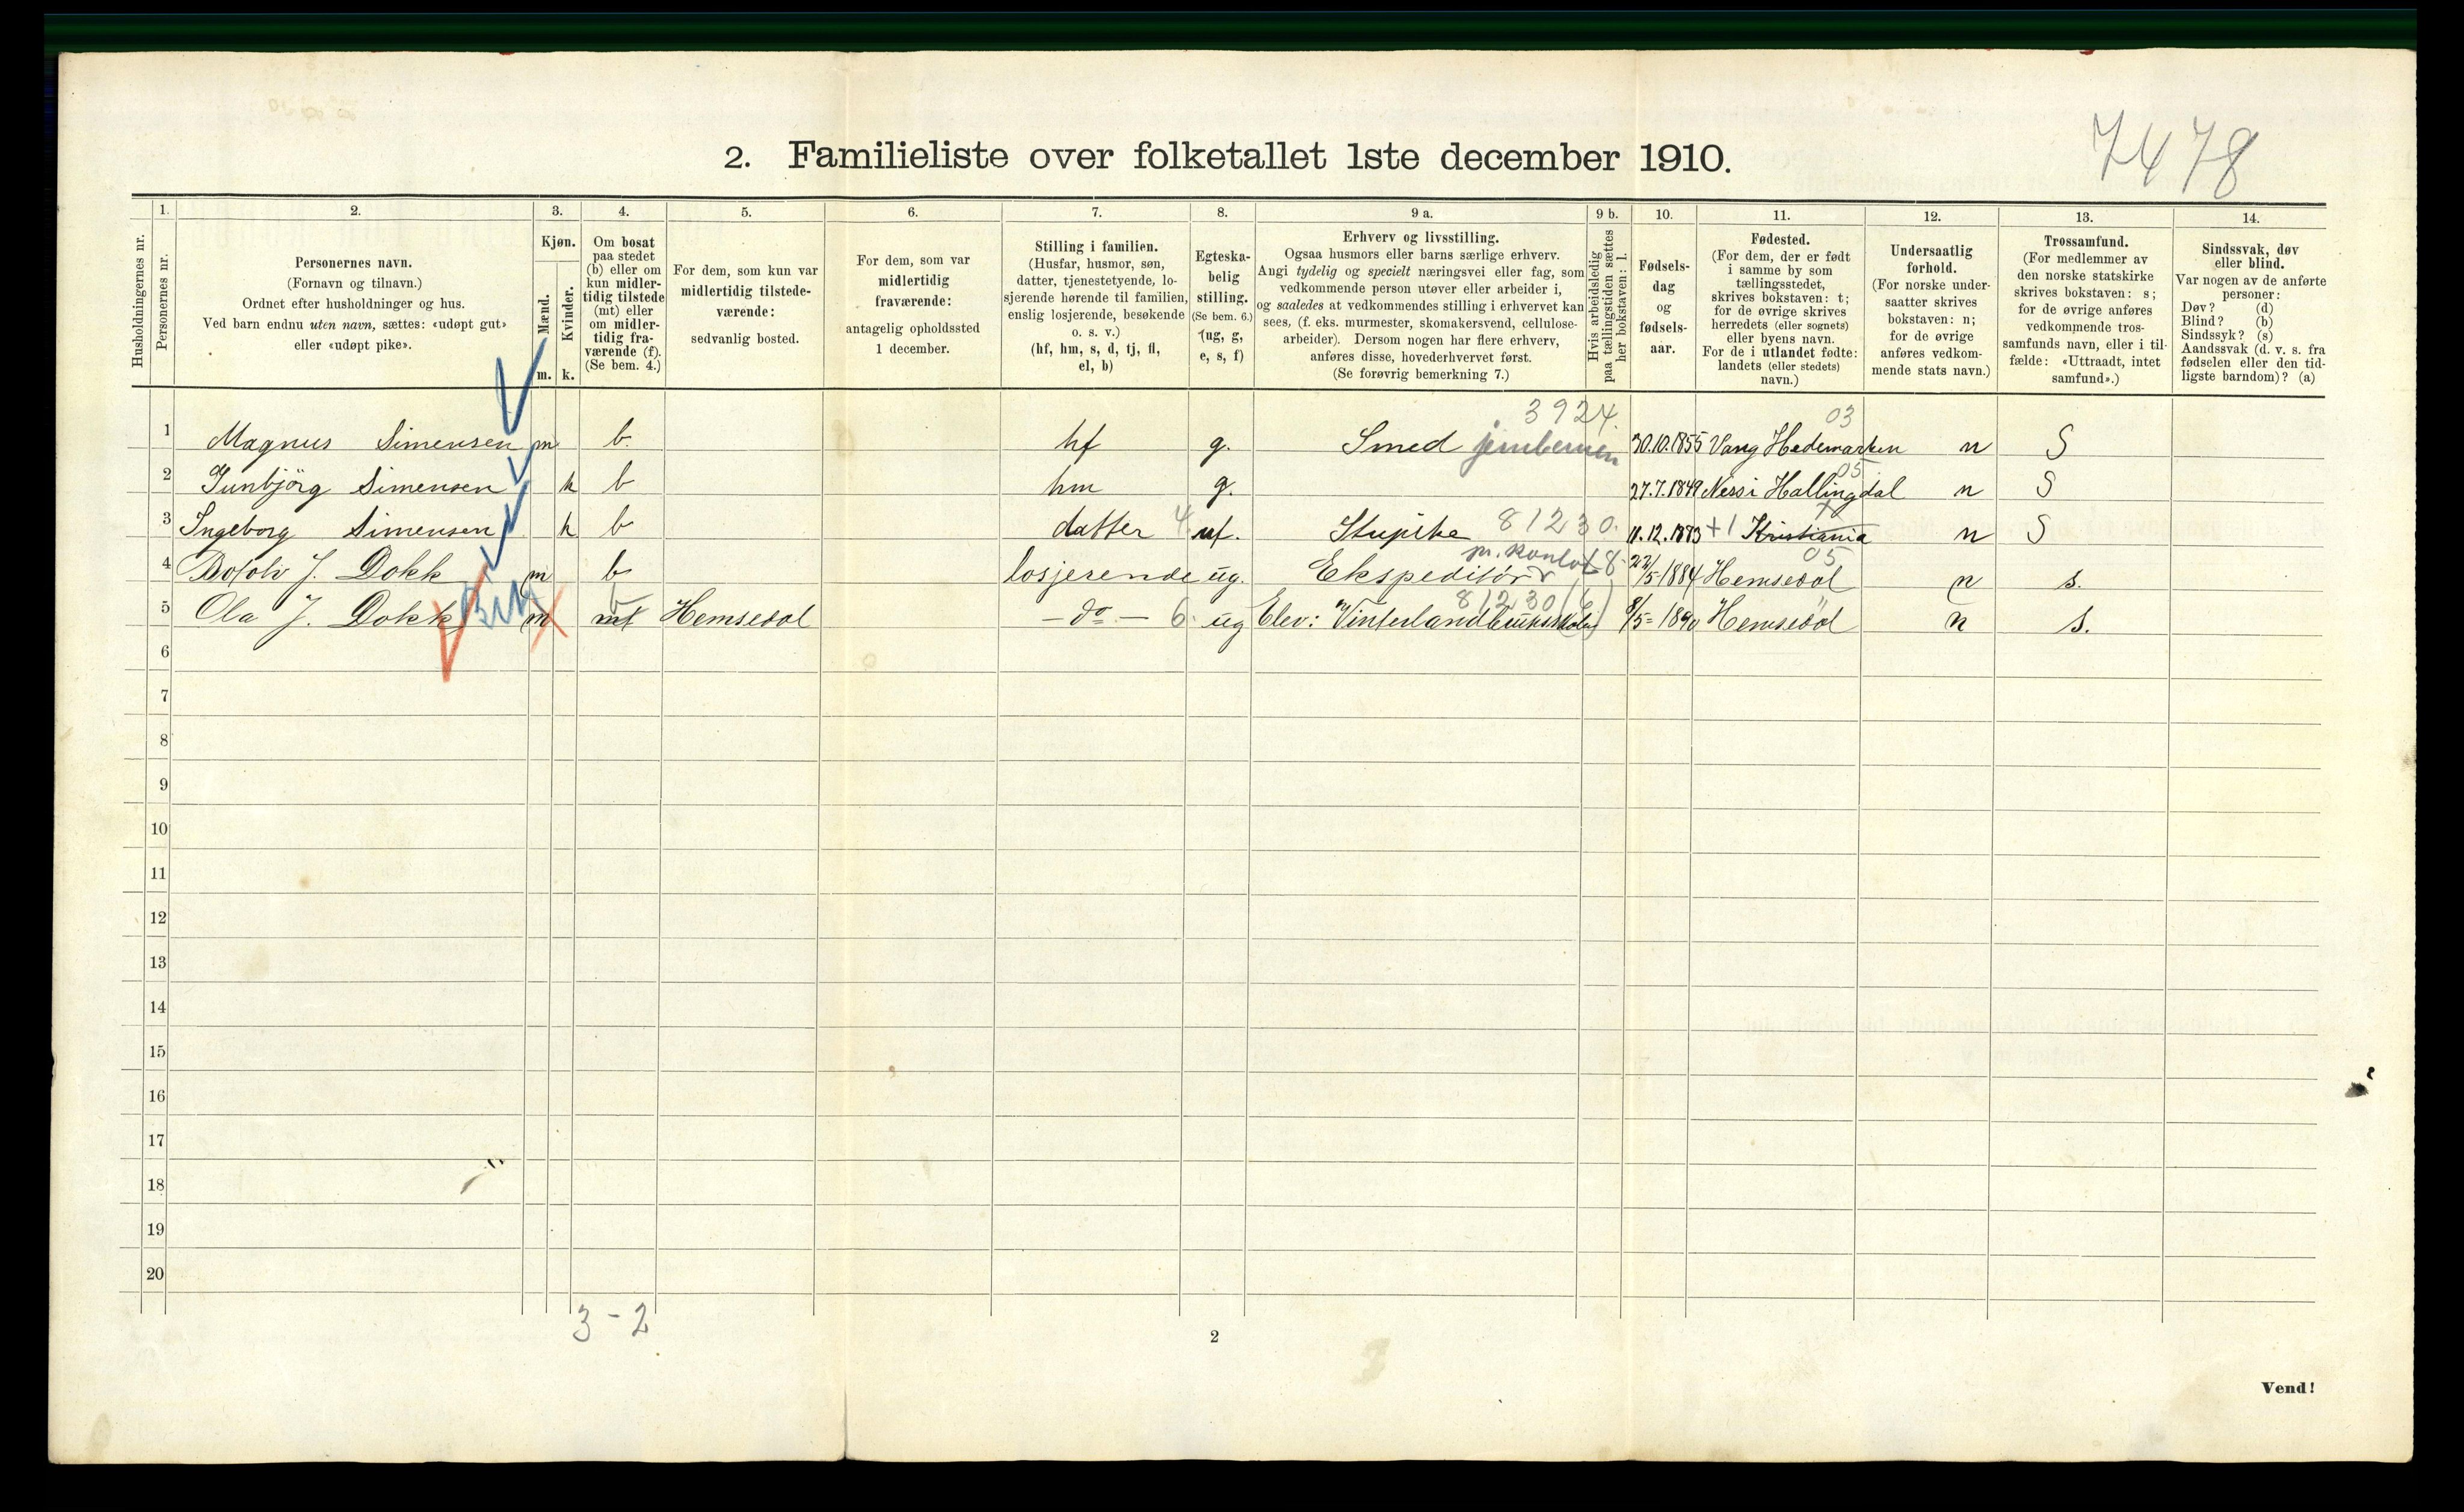 7478
2. Familieliste over folketallet 1ste december 1910.
Husholdningernes nr.
1.
Personernes nr.
2.
Personernes navn.
(Fornavn og tilnavn.)
Ordnet efter husholdninger og hus.
Ved barn endnu uten navn, sættes: «udøpt gut»
eller «udøpt pike».
3.
Kjøn.
Mænd.
Kvinder.
m. k.
4.
Om bosat
paa stedet
(b) eller om
kun midler-
tidig tilstede
(mt) eller
om midler-
tidig fra-
værende (f).
(Se bem. 4.)
5.
For dem, som kun var
midlertidig tilstede-
værende:
sedvanlig bosted.
6.
For dem, som var
midlertidig
fraværende:
antagelig opholdssted
1 december.
7.
Stilling i familien.
(Husfar, husmor, søn,
datter, tjenestetyende, lo-
sjerende hørende til familien,
enslig losjerende, besøkende
o. s. v.)
(hf, hm, s, d, tj, fl,
el, b)
8.
Egteska-
belig
stilling.
(Se bem. 6.)
(ug, g,
e, s, f)
9 a.
Erhverv og livsstilling.
Ogsaa husmors eller barns særlige erhverv.
Angi tydelig og specielt næringsvei eller fag, som
vedkommende person utøver eller arbeider i,
og saaledes at vedkommendes stilling i erhvervet kan
sees, (f. eks. murmester, skomakersvend, cellulose-
arbeider). Dersom nogen har flere erhverv,
anføres disse, hovederhvervet først.
(Se forøvrig bemerkning 7.)
9 b.
Hvis arbeidsledig
paa tællingstiden sættes
her bokstaven: l.
10.
Fødsels-
dag
og
fødsels-
aar.
11.
Fødested.
(For dem, der er født
i samme by som
tællingsstedet,
skrives bokstaven: t;
for de øvrige skrives
herredets (eller sognets)
eller byens navn.
For de i utlandet fødte:
landets (eller stedets)
navn.)
12.
Undersaatlig
forhold.
(For norske under-
saatter skrives
bokstaven: n;
for de øvrige
anføres vedkom-
mende stats navn.)
13.
Trossamfund.
(For medlemmer av
den norske statskirke
skrives bokstaven: s;
for de øvrige anføres
vedkommende tros-
samfunds navn, eller i til-
fælde: «Uttraadt, intet
samfund».)
14.
Sindssvak, døv
eller blind.
Var nogen av de anførte
personer:
Døv? (d)
Blind? (b)
Sindssyk? (s)
Aandssvak (d. v. s. fra
fødselen eller den tid-
ligste barndom)? (a)
3924. 03
1 Magnus Simensen m b. hf g. Smed 30.10.1855 Vang Hedemarken n S
05
2 Gunbjörg Simensen k b hm g. 27.7.1849 Nes i Hallingdal n S
3 Ingeborg Simensen k b datter 4. 81230. 11.12.1883 + 1 Kristiania n S
05
4 Botolv J. Dokk m b losjerende ug. Ekspeditör 22/5-1884 Hemsedal n s.
81230
5 Ola J. Dokk m mt Hemsedal - do - 6. ug Elev: Vinterlandbruksskolen 8/5-1890 Hemsedal n s.
6
7
8
9
10
11
12
13
14
15
16
17
18
19
20
3 - 2
2
Vend!